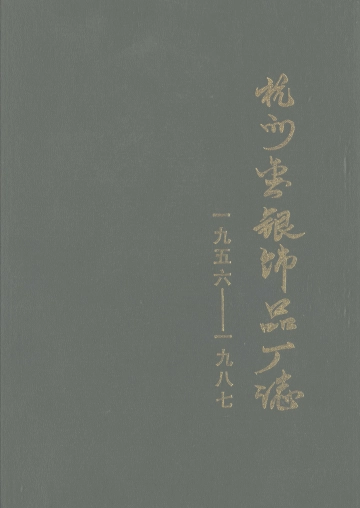 杭州金银饰品厂誌
一九五六——一九八七